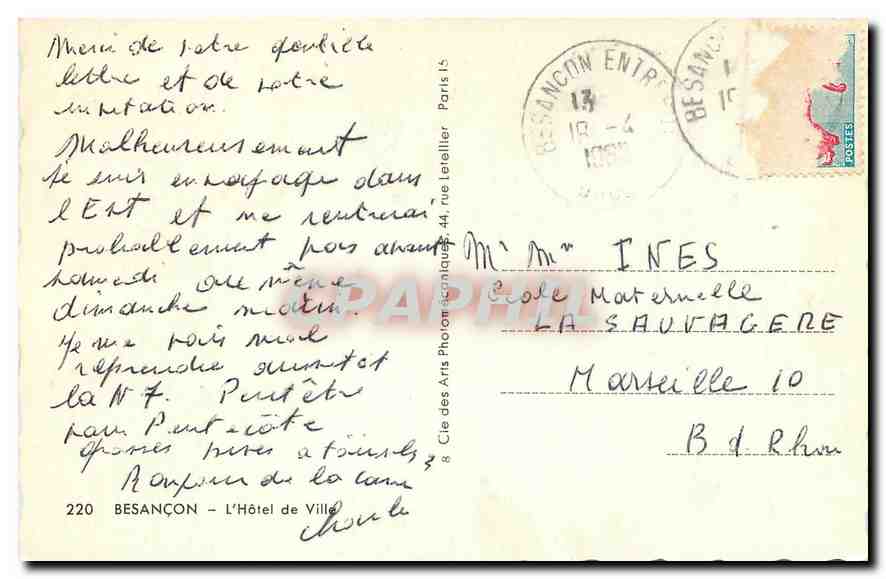 Merci de votre gentille
lettre et de votre
invitation.
Malheureusement
je suis en voyage dans
l'Est et ne rentrerai
probablement pas avant
samedi ou même
dimanche matin.
Je me vois mal
reprendre aussitot
la N 7. Peut être
pour Pentecôte
grosses bises a tous les 3
Bonjour de la
220 BESANÇON - L'Hôtel de Ville
8 Cie des Arts Photomécaniques, 44, rue Letellier Paris 15
BESANÇON ENTR
13
18 -4
BESANÇ
POSTES
Mr Mme INES
Ecole Maternelle
LA SAUVAGERE
Marseille 10
B d. Rhone
CPAPHIL